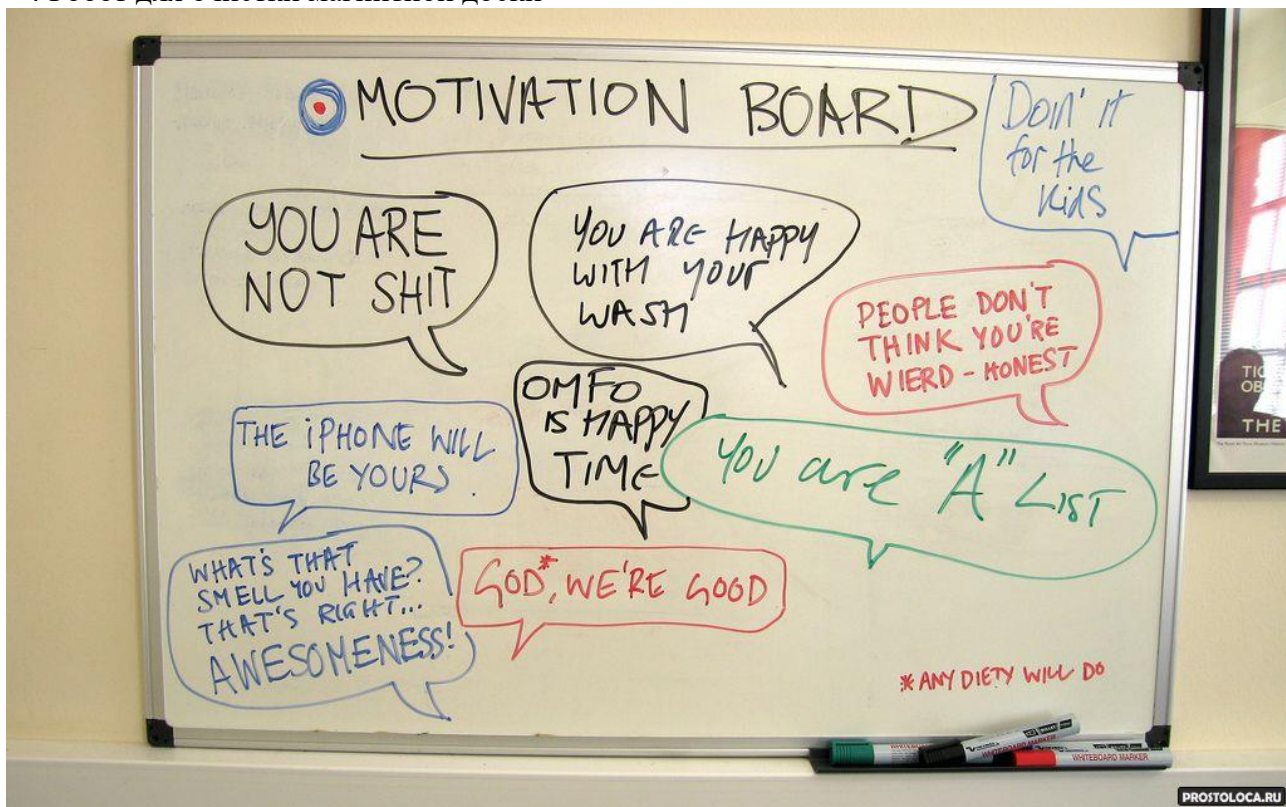 MOTIVATION BOARD
Doin' it
for the
Kids
YOU ARE
NOT SHIT
YOU ARE HAPPY
WITH YOUR
WASH
PEOPLE DON'T
THINK YOU'RE
WIERD - HONEST
OMFO
IS HAPPY
TIME
THE iPHONE WILL
BE YOURS.
YOU are "A" LIST
WHAT'S THAT
SMELL YOU HAVE?
THAT'S RIGHT...
AWESOMENESS!
GOD*, WE'RE GOOD
* ANY DIETY WILL DO
THE
WHITEBOARD MARKER
PROSTOLOCA.RU